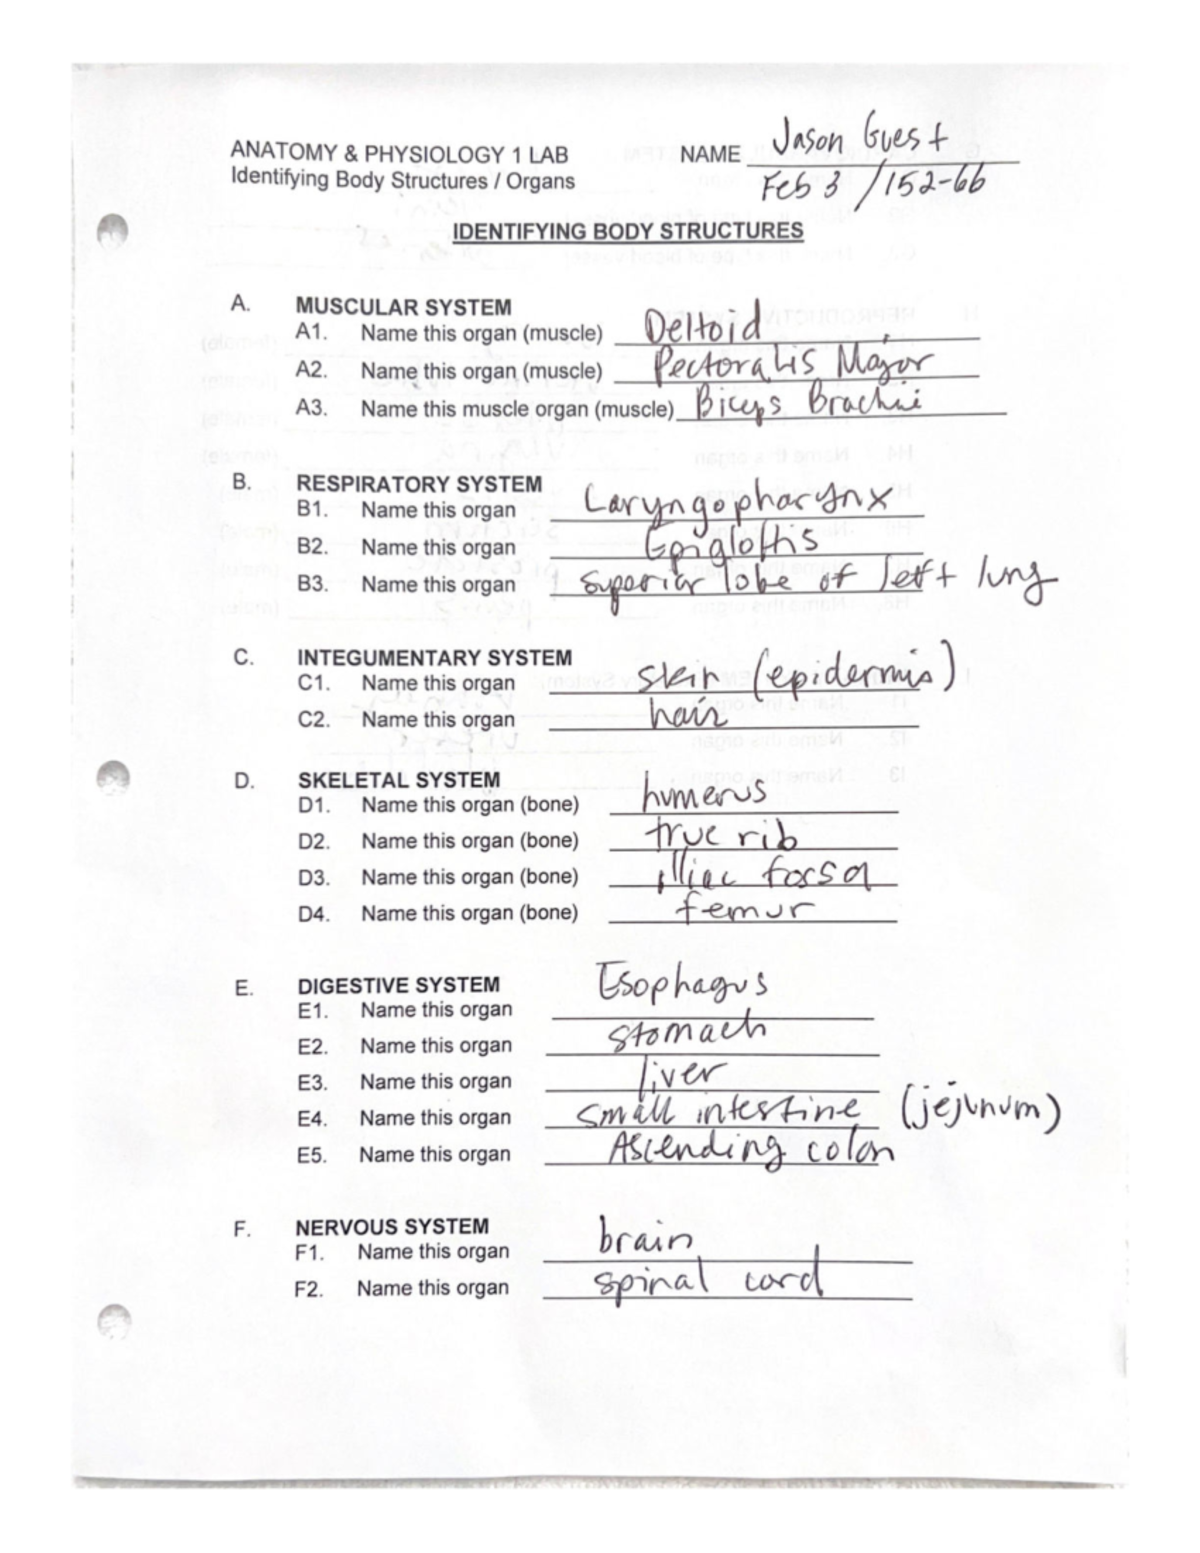 ANATOMY & PHYSIOLOGY 1 LAB NAME Jason Guest
Identifying Body Structures / Organs Feb 3 / 152-66
IDENTIFYING BODY STRUCTURES
A. MUSCULAR SYSTEM
A1. Name this organ (muscle) Deltoid
A2. Name this organ (muscle) Pectoralis Major
A3. Name this muscle organ (muscle) Biceps Brachii
B. RESPIRATORY SYSTEM
B1. Name this organ Laryngopharynx
B2. Name this organ Epiglottis
B3. Name this organ Superior lobe of left lung
C. INTEGUMENTARY SYSTEM
C1. Name this organ skin (epidermis)
C2. Name this organ hair
D. SKELETAL SYSTEM
D1. Name this organ (bone) humerus
D2. Name this organ (bone) true rib
D3. Name this organ (bone) illiac fossa
D4. Name this organ (bone) femur
E. DIGESTIVE SYSTEM
E1. Name this organ Esophagus
E2. Name this organ stomach
E3. Name this organ liver
E4. Name this organ small intestine (jejunum)
E5. Name this organ Ascending colon
F. NERVOUS SYSTEM
F1. Name this organ brain
F2. Name this organ spinal cord